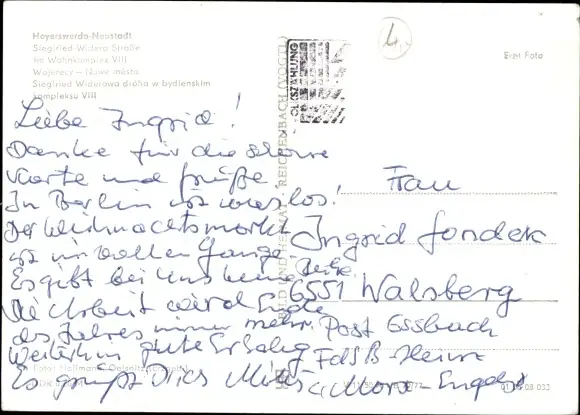 Hoyerswerda-Neustadt
Siegfried-Widera Straße
im Wohnkomplex VIII
Wojerecy - Nowe město
Siegfried Widerowa dróha w bydlenskim
kompleksu VIII
Echt Foto
VOLKSZÄHLUNG
BILD UND HEIMAT REICHENBACH (VOGTL)
Liebe Ingrid!
Danke für die schöne
Karte und Grüße
In Berlin ist was los!
Der Weihnachtsmarkt
ist in vollem Gange
Es gibt bei uns keine
Die Arbeit wird Ende
des Jahres immer mehr.
Weiterhin gute Erholung
Es grüßt Dich
Frau
Ingrid
6551 Walsberg
Post Essbach
FDGB-Heim
Marx-Engels
Foto: Hoffmann, Oelsnitz
01 08 032